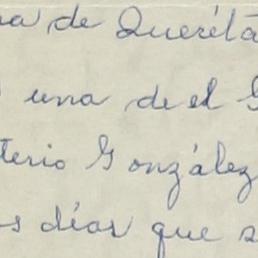 na de Queréta
una de el G
terio González
s días que s